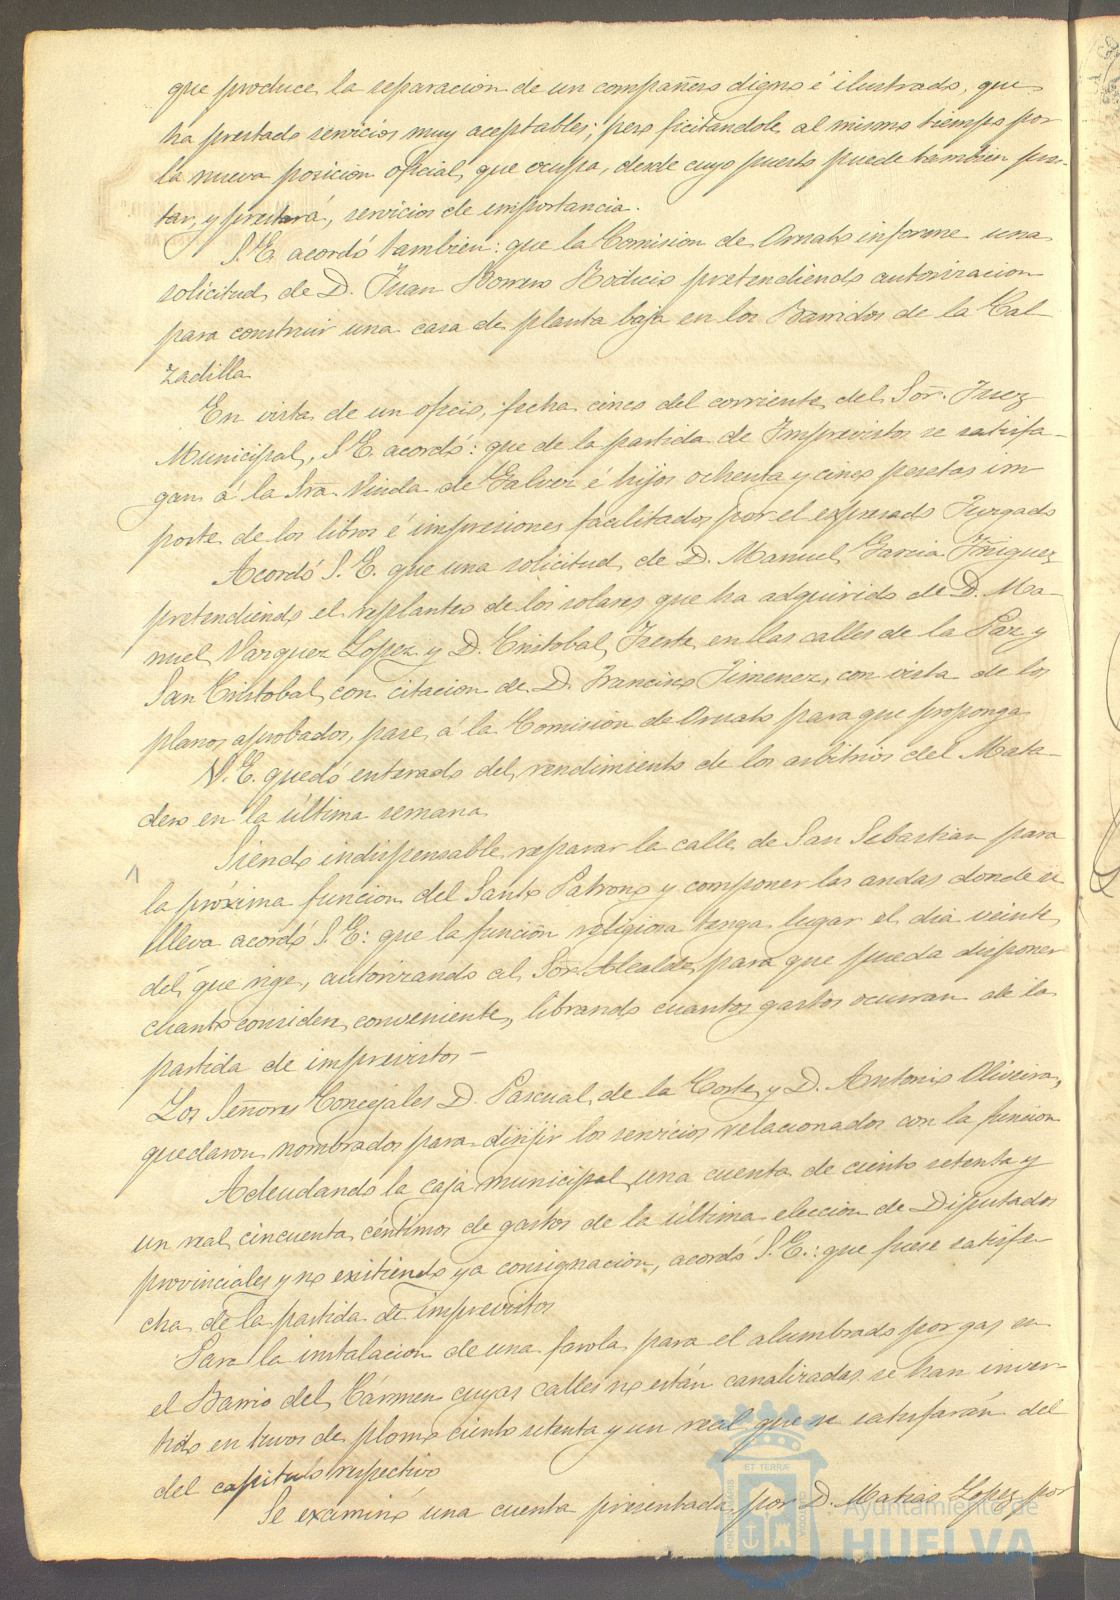 que produce la separacion de un compañero digno é ilustrado, que
ha prestado servicios muy aceptables; pero ficitandole al mismo tiempo por
la nueva posicion oficial que ocupa, desde cuyo puesto puede tambien pres-
tar, y prestará, servicios de importancia.
S.E. acordó tambien: que la Comision de Ornato informe una
solicitud de D. Juan Borrero Rodicio pretendiendo autorizacion
para construir una casa de planta baja en los Barridos de la Cal
zadilla
En vista de un oficio, fecha cinco del corriente del Sor. Juez
Municipal, S.E. acordó: que de la partida de Imprevistos se satisfa-
gan á la Sra. Viuda de Galvez é hijos ochenta y cinco pesetas im
porte de los libros é impresiones facilitados por el expresado Juzgado
Acordó S.E. que una solicitud de D. Manuel Garcia Iñiguez
pretendiendo el replanteo de los solares que ha adquirido de D. Ma-
nuel Vazquez Lopez y D. Cristobal en las calles de la Paz y
San Cristobal, con citacion de D. Francisco Jimenez, con vista de los
planos aprobados, pase á la Comisión de Ornato para que proponga
S.E. quedó enterado del rendimiento de los arbitrios del Mata-
dero en la última semana
Siendo indispensable reparar la calle de San Sebastian para
la próxima funcion del Santo Patrono y componer las andas donde se
lleva acordó S.E: que la función religiosa tenga lugar el dia veinte
del que rige, autorizando al Sor. Alcalde para que pueda disponer
cuanto considere conveniente, librando cuantos gastos ocurran de la
partida de imprevistos-
Los Señores Concejales D. Pascual de la Corte y D. Antonio Oliveira,
quedaron nombrados para dirijir los servicios relacionados con la funcion
Adeudando la caja municipal una cuenta de ciento setenta y
un real cincuenta céntimos de gastos de la última eleccion de Diputados
provinciales y no existiendo ya consignacion, acordó S.E.: que fuese satisfe-
cha de la partida de imprevistos
Para la instalacion de una farola para el alumbrado por gas en
el Barrio del Cármen cuyas calles no están canalizadas se han inver-
tido en tuvos de plomo ciento setenta y un real que se satisfarán del
del capitulo respectivo
Se examinó una cuenta presentada por D. Matias Lopez por
ET TERRÆ
Ayuntamiento de
HUELVA